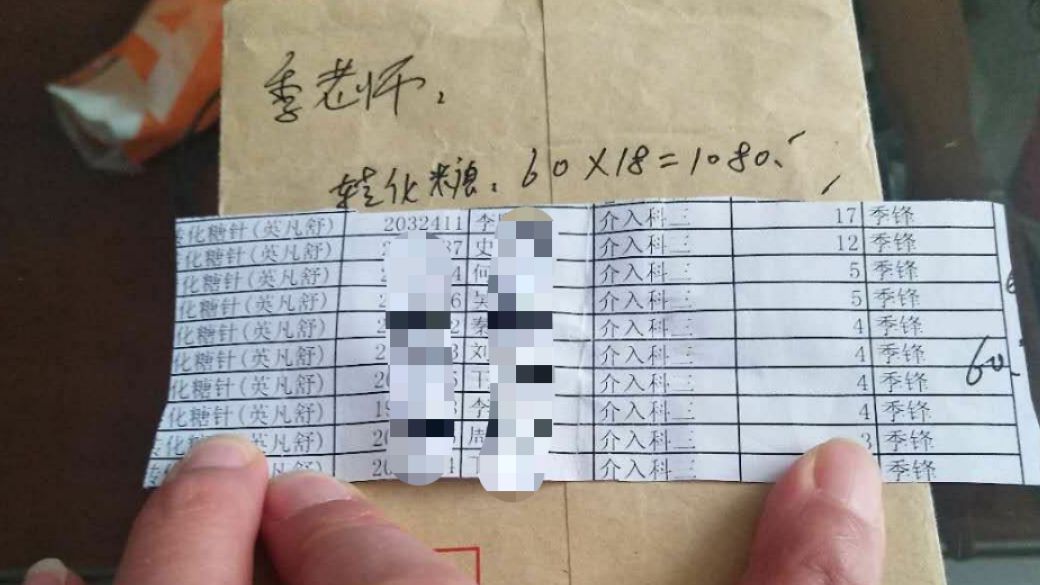 季老师,
转化糖. 60×18=1080.
化糖针(英凡舒) 2032411 李 介入科三 17 季锋
化糖针(英凡舒) 37 史 介入科三 12 季锋
化糖针(英凡舒) 4 何 介入科三 5 季锋
化糖针(英凡舒) 6 吴 介入科三 5 季锋
化糖针(英凡舒) 2 秦 介入科三 4 季锋
化糖针(英凡舒) 3 刘 介入科三 4 季锋 60.
化糖针(英凡舒) 20 5 王 介入科三 4 季锋
化糖针(英凡舒) 19 3 李 介入科三 4 季锋
化糖针(英凡舒) 20 周 介入科三 3 季锋
舒) 20 4 介入科三 季锋